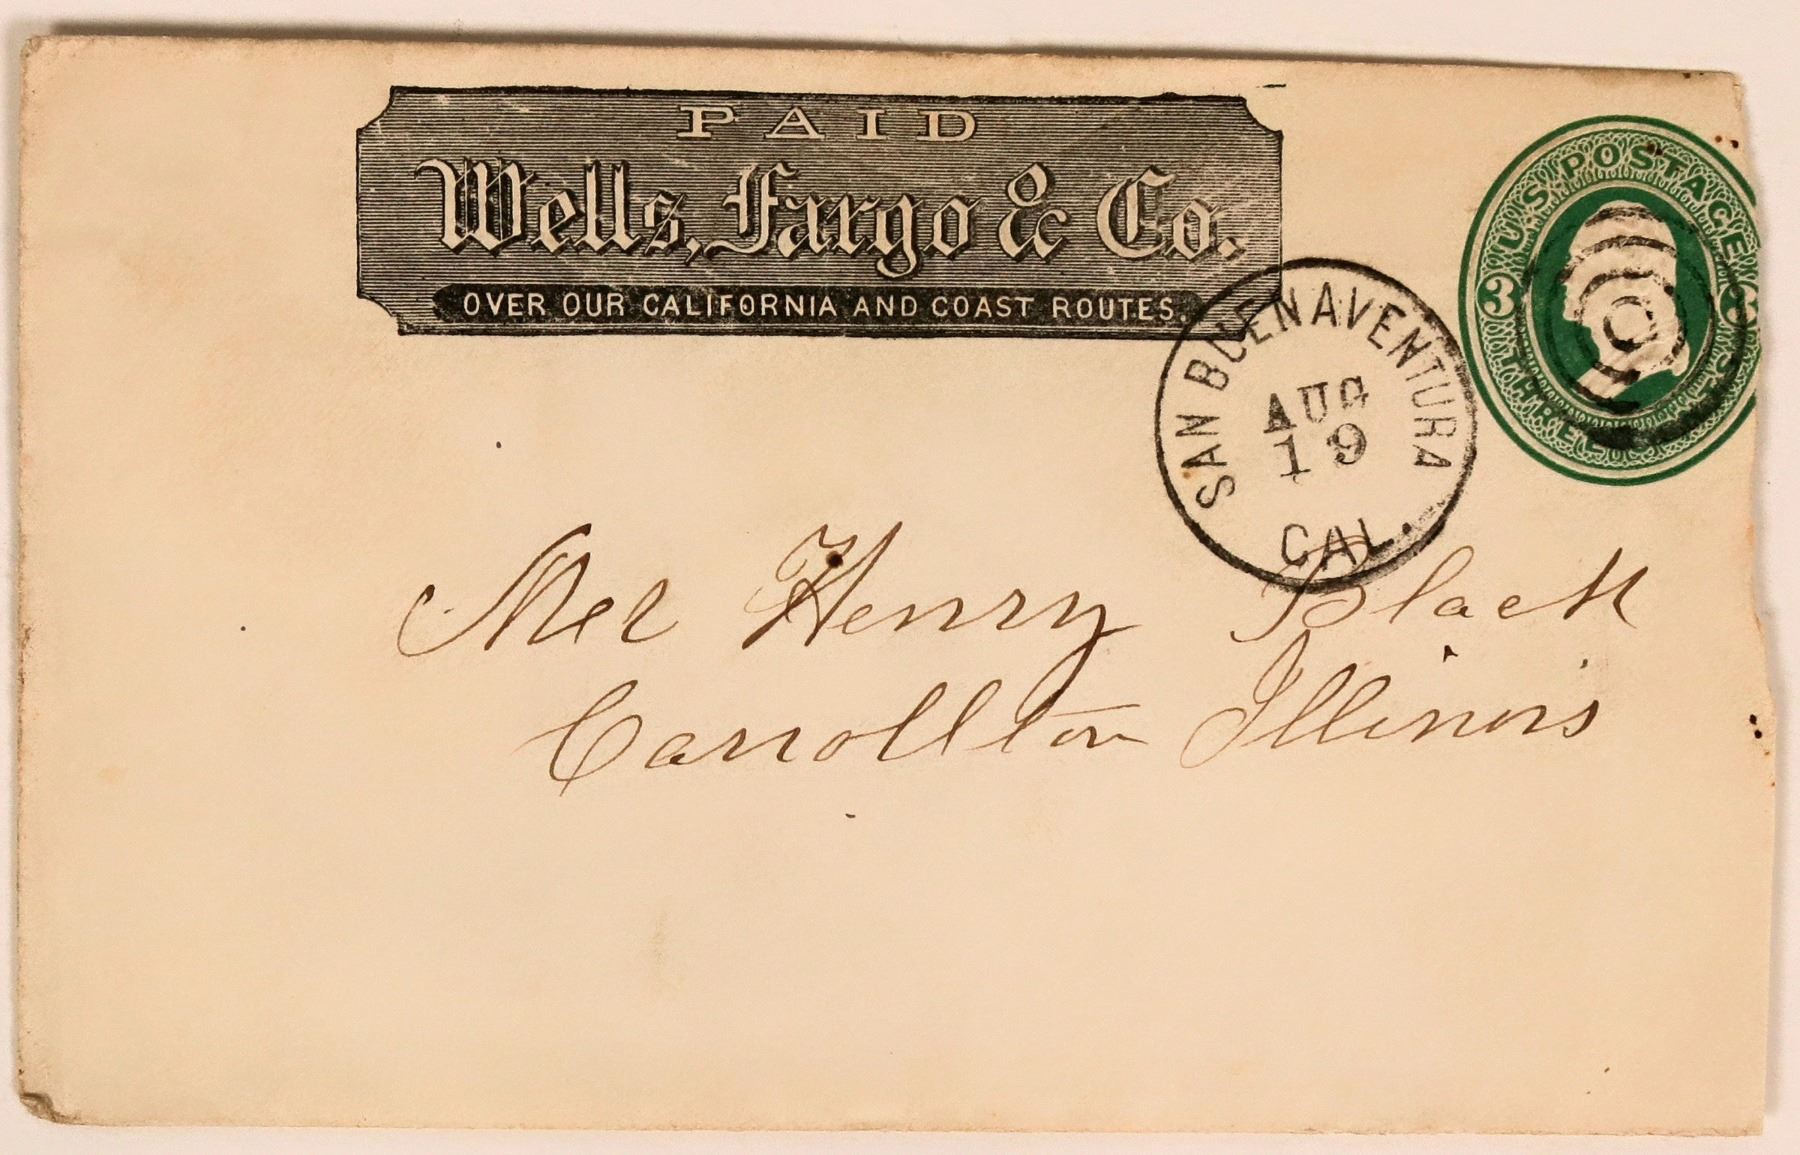 PAID
Wells, Fargo & Co.
OVER OUR CALIFORNIA AND COAST ROUTES.
U.S. POSTAGE
3 3
THREE CENTS
SAN BUENAVENTURA
AUG
19
CAL.
Mr Henry Black
Carrollton Illinois